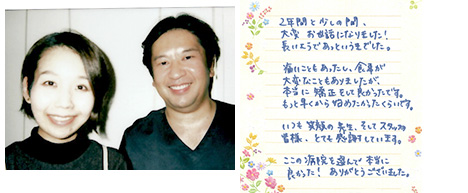 2年間と少しの間、
大変 お世話になりました!
長いようであっというまでした。
痛いこともあったし、食事が
大変なこともありましたが、
本当に 矯正をして良かったです。
もっと早くから始めたかったくらいです。
いつも 笑顔の先生、そしてスタッフの
皆様、とても感謝しています。
ここの病院を選んで本当に
良かった! ありがとうございました。